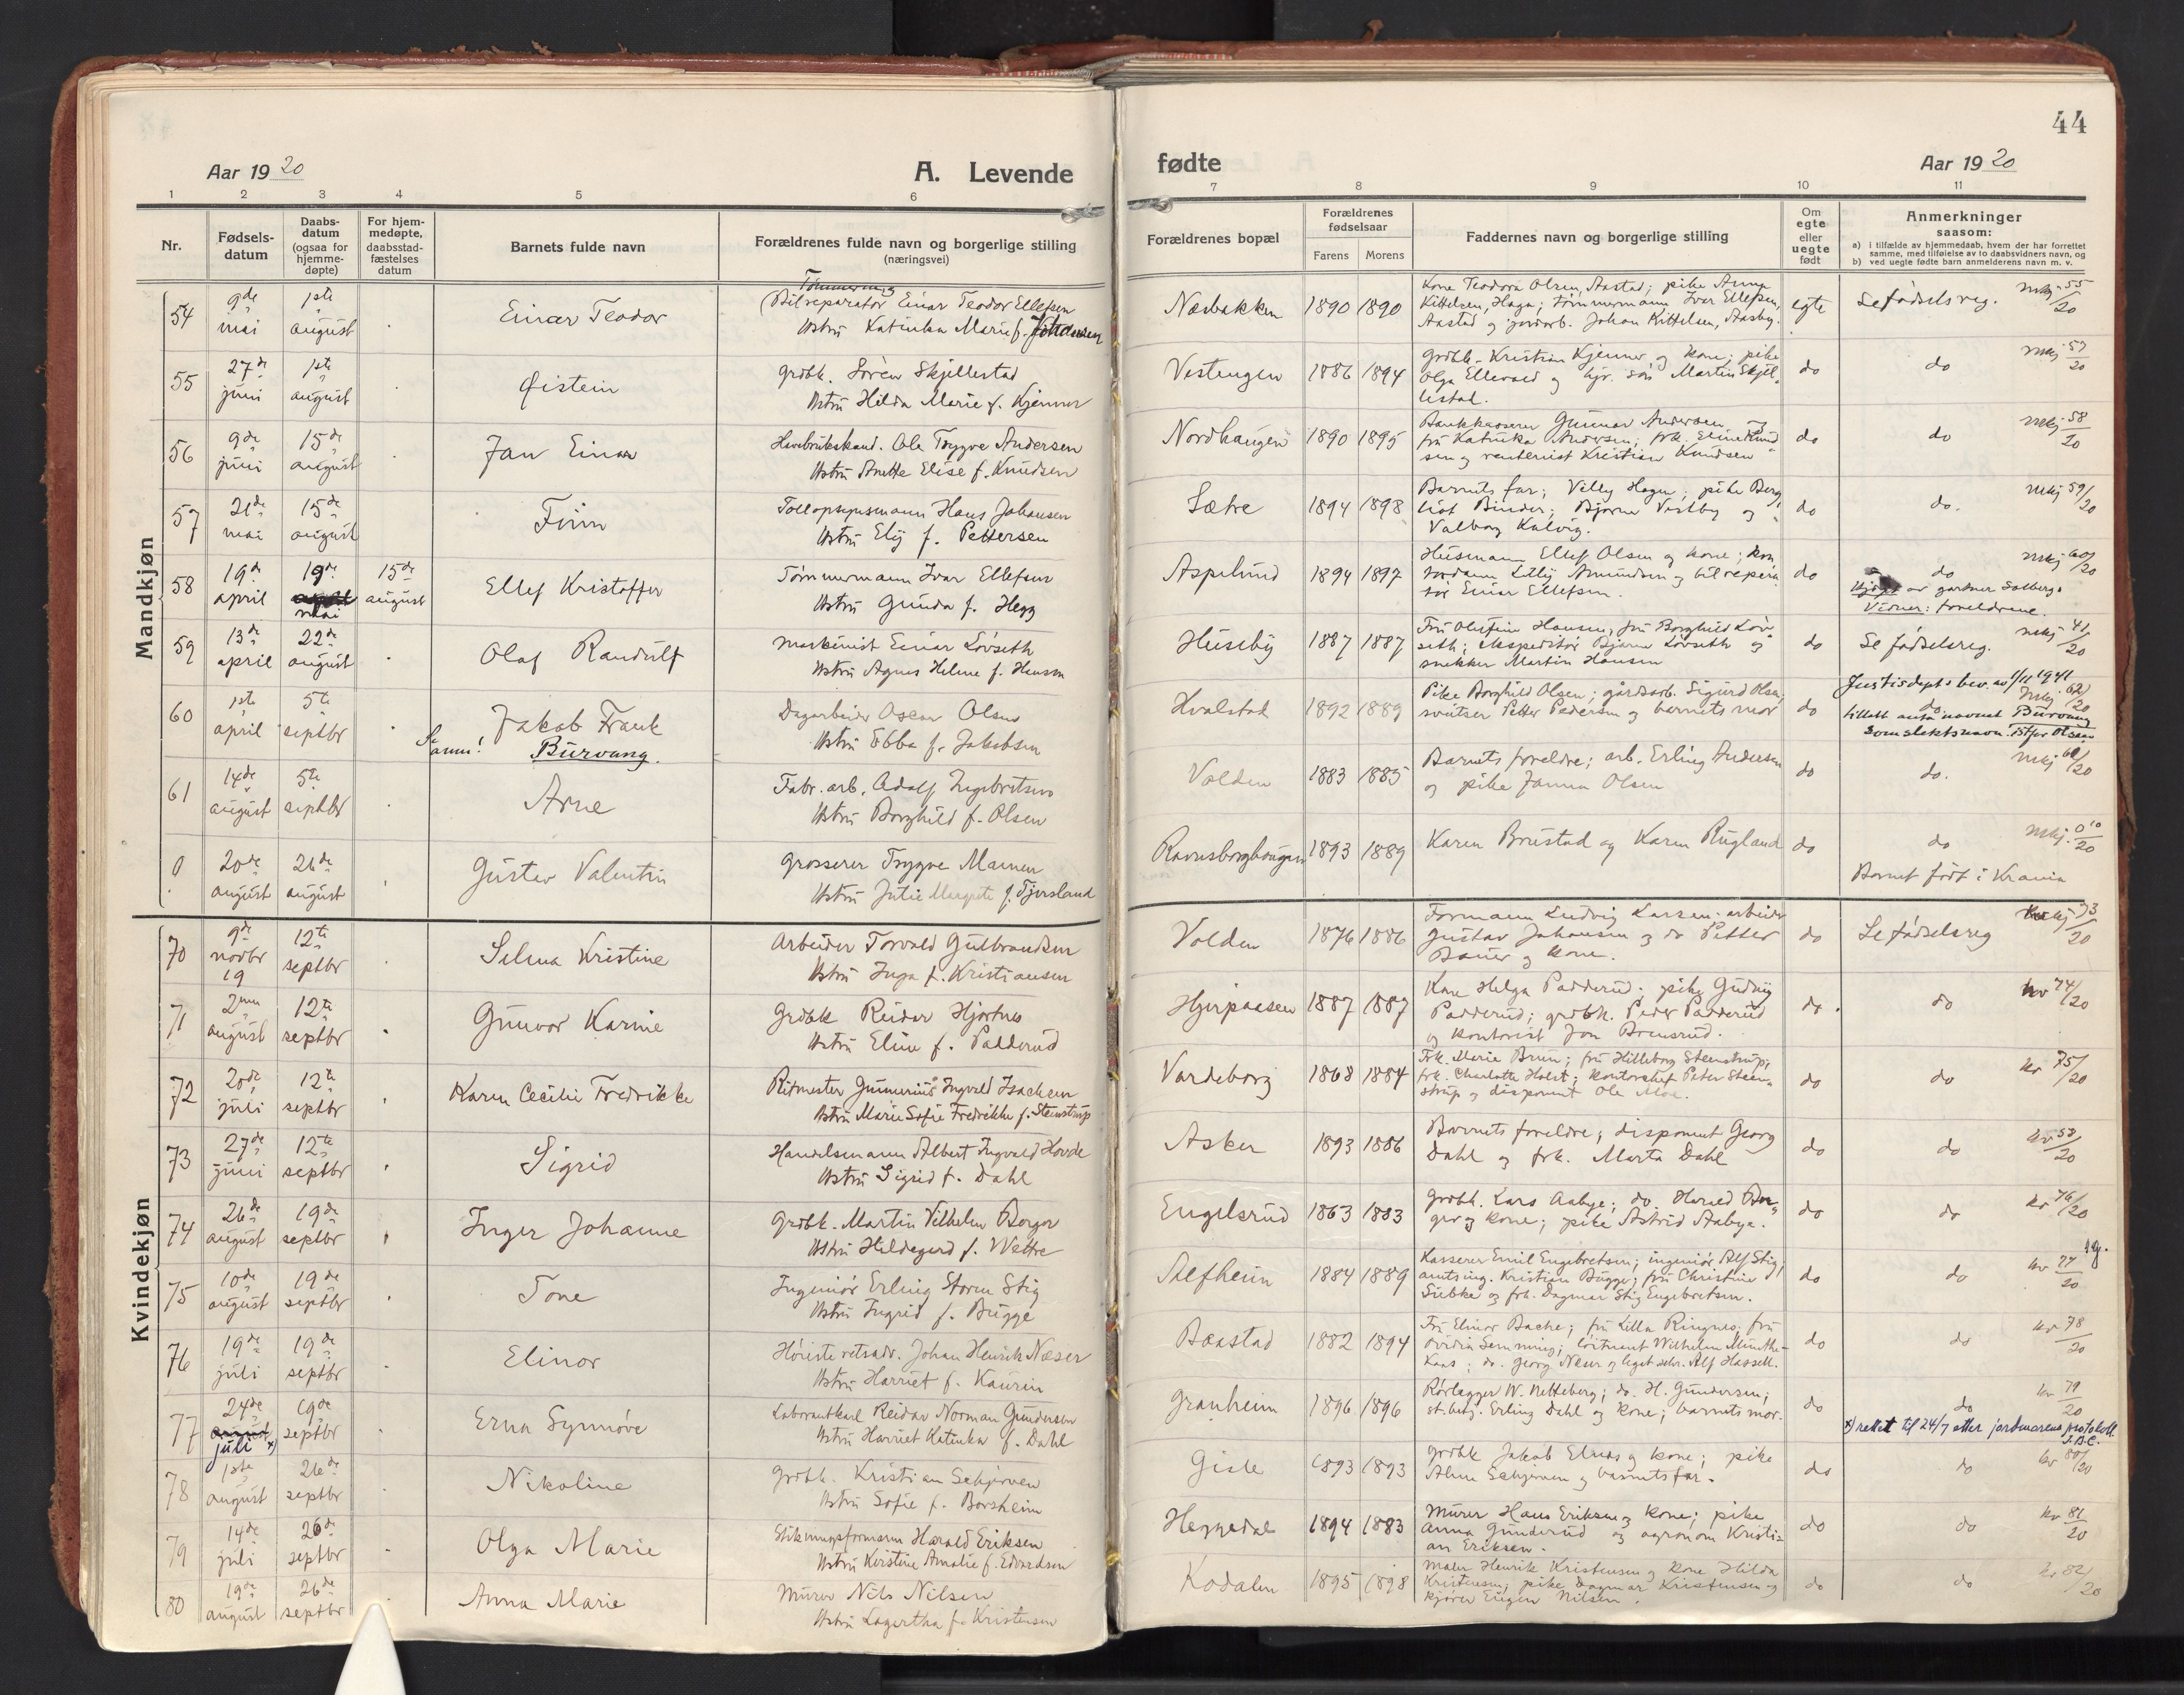 44
Aar 1920
A. Levende
fødte
Aar 1920
1 2 3 4 5 6 7 8 9 10 11
Nr.
Fødsels-
datum
Daabs-
datum
(ogsaa for
hjemme-
døpte)
For hjem-
medøpte,
daabsstad-
fæstelses
datum
Barnets fulde navn
Forældrenes fulde navn og borgerlige stilling
(næringsvei)
Forældrenes bopæl
Forældrenes
fødselsaar
Farens Morens
Faddernes navn og borgerlige stilling
Om
egte
eller
uegte
født
Anmerkninger
saasom:
a) i tilfælde av hjemmedaab, hvem der har forrettet
samme, med tilføielse av to daabsvidners navn, og
b) ved uegte fødte barn anmelderens navn m. v.
Mandkjøn
54
9de mai
1ste august
Einar Teodor
Tømmermand
(Bilreparatør Einar Teodor Ellefsen
Hstru Katinka Marie f. Johansen
Næsbakken
1890 1890
Kone Teodora Olsen, Aastad; pike Anna
Kittelsen, Haga; tømmermann Ivar Ellefsen,
Aastad og jordarb. Johan Kittelsen, Aasby.
egte
Se fødselsreg. mkj 55/20
55
27de juni
1ste august
Øistein
Grdbk. Søren Skjellestad
Hstru Hilda Marie f. Kjenner
Vestengen
1886 1894
Grdbk. Kristian Kjenner og kone; pike
Olga Ellevold og gjr. søn Martin Skjel-
lestad.
do
do mkj 57/20
56
9de juni
15de august
Jan Einar
Havebrukskand. Ole Trygve Andersen
Hstru Anette Elise f. Knudsen
Nordhaugen
1890 1895
Bankkasserer Gunnar Andersen og
fru Katinka Andersen; frk. Knud-
sen og rentenist Kristian Knudsen
do
do mkj 58/20
57
21de mai
15de august
Finn
Tollopsynsmann Hans Johansen
Hstru Ely f. Pettersen
Sætre
1894 1898
Barnets far; Villy Hagen; pike Berg
liot Binder; Bjarne Vestby og
Valborg Kalvig.
do
do. mkj 59/20
58
19de april
19de mai
15de august
Ellef Kristoffer
Tømmermann Ivar Ellefsen
Hstru Gunda f. Hegg
Aspelund
1894 1897
Husmann Ellef Olsen og kone; kon
tordame Lilly Amundsen og bilrepara
tør Einar Ellefsen.
do
do mkj 60/20
Hjdpt av gartner Solberg.
Vidner: foreldrene.
59
13de april
22de august
Olaf Randulf
Maskinist Einar Løvseth
Hstru Agnes Helene f. Hansen
Huseby
1887 1887
Fru Olufine Hansen, fru Borghild Løv
seth; ekspeditør Bjarne Løvseth og
snekker Martin Hansen
do
Se fødselsreg. mkj 41/20
60
1ste april
5te septbr
Jakob Frank
Se anm! Burvang.
Dagarbeider Oscar Olsen
Hstru Ebba f. Jakobsen
Hvalstad
1892 1889
Pike Borghild Olsen; gårdsarb. Sigurd Olsen,
sveitser Petter Pedersen og barnets mor
do
Justisdepts bev. av 1/11 1941
do mkj. 62/20
tillatt anta navnet Burvang
som slektsnavn istfor Olsen
61
14de august
5te septbr
Arne
Fabr. arb. Adolf Ingebretsen
Hstru Borghild f. Olsen
Volden
1883 1885
Barnets foreldre; arb. Erling Andersen
og pike Janna Olsen
do
do.
0
20de august
26de august
Gustav Valentin
Grosserer Trygve Mamen
Hstru Julie Margrete f. Tjersland
Ravnsborghaugen
1893 1889
Karen Brustad og Karen Rugland
do
do mkj. 0/20
Barnet født i Krania
Kvindekjøn
70
9de novbr 19
12te septbr
Selma Kristine
Arbeider Torvald Gulbrandsen
Hstru Inga f. Kristiansen
Volden
1876 1886
Formann Ludvig Larsen. arbeider
Gustav Johansen og do Petter
Bauer og kone.
do
Se fødselsreg kj 73/20
71
2nen august
12te septbr
Gunvor Karine
Grdbk Reidar Hjortnes
Hstru Eline f. Padderud
Hjerpaasen
1887 1887
Kone Helga Padderud. pike Gudny
Padderud; grdbk. Peder Padderud
og kontorist Jon Brensrud.
do.
do kv 74/20
72
20de juli
12te septbr
Karen Cecilie Fredrikke
Ritmester Gunnerius Ingvald Isachsen
Hstru Marie Sofie Fredrikke f. Steenstrup
Vardeborg
1868 1884
Frk. Marie Brun; fru Hilleborg Steenstrup;
frk. Charlotte Holst; kontorchef Peter Steen-
strup og disponent Ole Moe.
do
do kv 75/20
73
27de juni
12te septbr
Sigrid
Handelsmann Albert Ingvald Hovde
Hstru Sigrid f. Dahl
Asker
1893 1886
Barnets foreldre; disponent Georg
Dahl og frk. Marta Dahl
do
do kv 53/20
74
26de august
19de septbr
Inger Johanne
Grdbk. Martin Vilhelm Borger
Hstru Hildegard f. Wettre
Engelsrud
1863 1883
Grdbk. Lars Aabye; do Harald Bor-
ger og kone; pike Astrid Aabye.
do
do kv 76/20
75
10de august
19de septbr
Tone
Ingeniør Erling Storm Stig
Hstru Ingrid f. Bugge
Alfheim
1884 1889
Kasserer Emil Engebretsen; ingeniør Alf Stig;
amtsing. Kristian Bugge; fru Christine
Siebke og frk. Dagmar Stig Engebretsen.
do
do kv 77/20
76
19de juli
19de septbr
Elinor
Høiesteretsadv. Johan Henrik Næser
Hstru Harriet f. Kaurin
Baastad
1882 1894
Fru Elinor Bache; fru Lilla Ringnes; fru
Ovidia Semming; løitnant Wilhelm Munthe-
Kaas; do. Georg Næser og leget.sekr. Alf Hassell.
do
do kv 78/20
77
24de juli x)
19de septbr
Erna Synnøve
Laborantkarl Reidar Norman Gundersen
Hstru Harriet Katinka f. Dahl
Granheim
1896 1896
Rørlegger W. Netteberg; do. H. Gundersen;
st.betj. Erling Dahl og kone; barnets mor.
do
do kv 79/20
x) rettet til 24/7 etter jordmorens protokoll.
J.B.C.
78
1ste august
26de septbr
Nikoline
Grdbk. Kristian Schjerven
Hstru Sofie f. Borsheim
Gisle
1893 1893
Grdbk Jakob Elnes og kone; pike
Aline Schjerven og barnets far.
do
do kv 80/20
79
14de juli
26de septbr
Olga Marie
Stikningsformann Harald Eriksen
Hstru Kirstine Amalie f. Edvardsen
Hegnedal
1894 1883
Murer Hans Eriksen og kone; pike
Anna Gunderud og agronom Kristi-
an Eriksen.
do
do kv 81/20
80
19de august
26de septbr
Anna Marie
Murer Nils Nilsen
Hstru Lagertha f. Kristensen
Kodalen
1895 1898
Maler Henrik Kristensen og kone Hilda
Kristensen; pike Dagmar Kristensen og
kjører Eugen Nilsen.
do
do kv 82/20